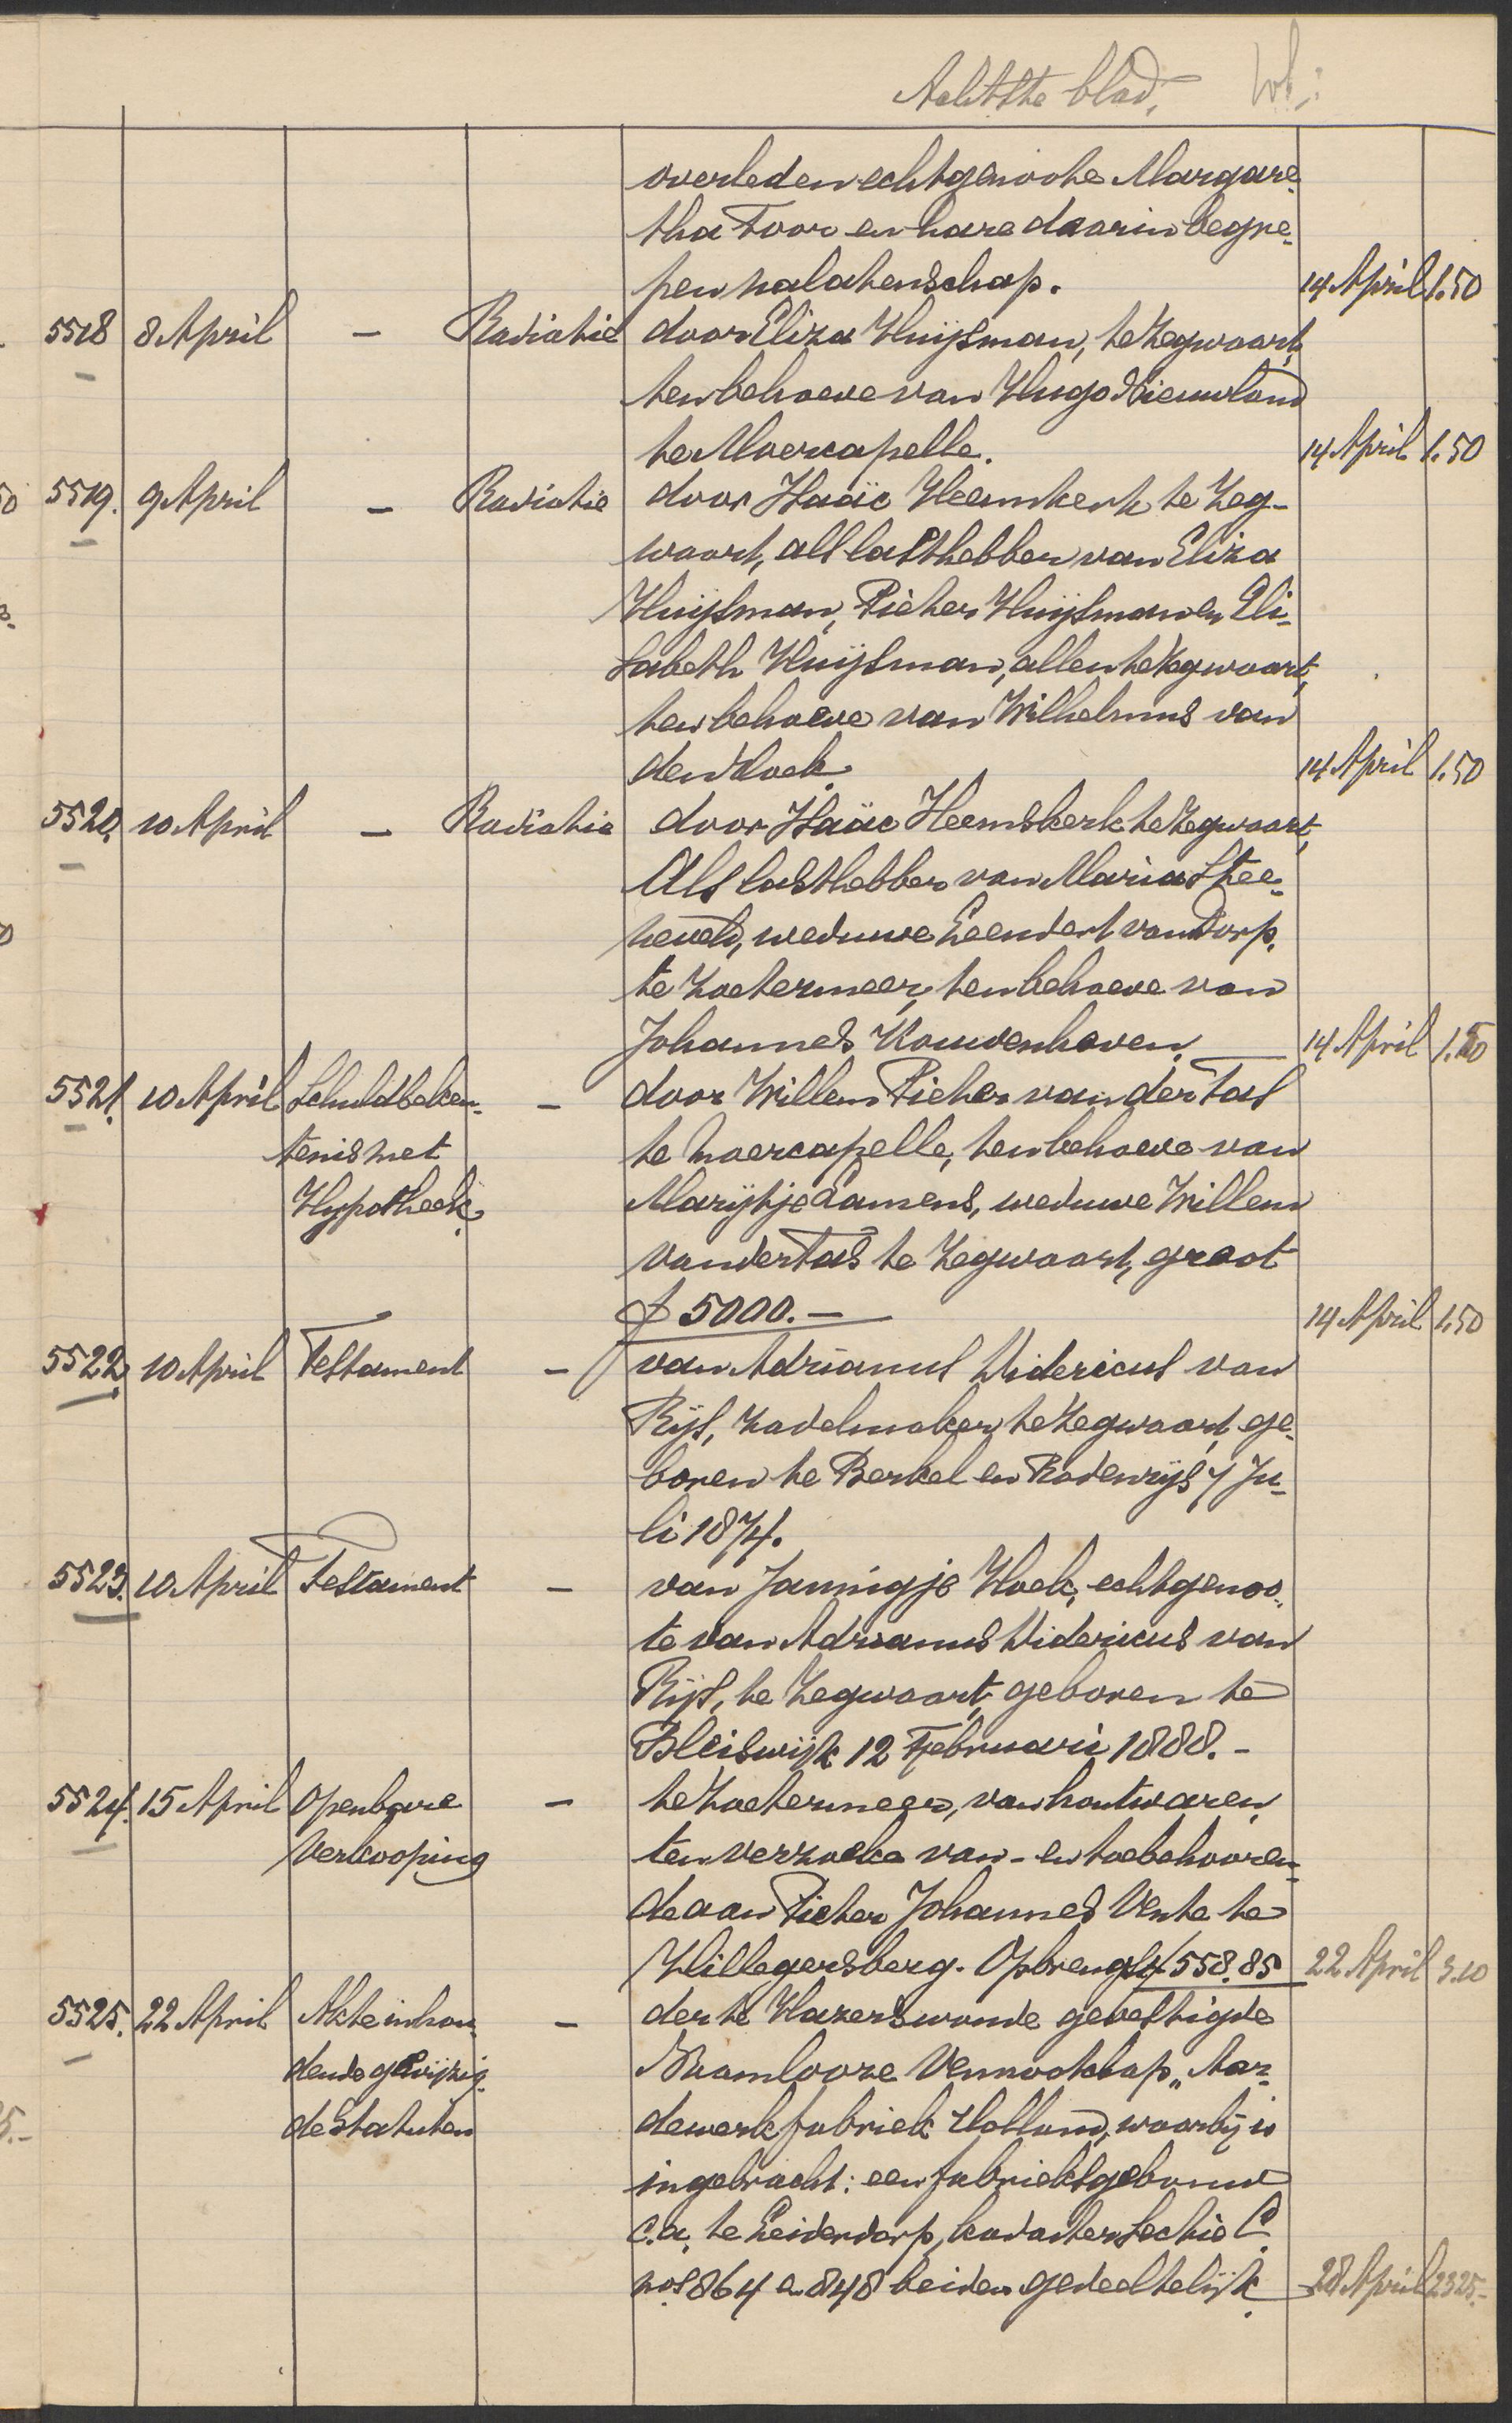 Achtste blad.
overleden echtgenoote Margare-
tha Toor en hare daarin begre-
pen nalatenschap. 14 April 1.50
5518 8 April - Radiatie door Eliza Huijsman, te Zegwaart,
ten behoeve van Hugo Nieuwland
te Moercapelle. 14 April 1.50
5519. 9 April - Radiatie door Isaäc Heemskerk te Zeg-
waart, als lasthebber van Eliza
Huijsman, Pieter Huijsman en Eli-
sabeth Huijsman, allen te Zegwaart,
ten behoeve van Wilhelmus van
den Hoek. 14 April 1.50
5520. 10 April - Radiatie door Isaäc Heemskerk te Zegwaart,
Als lasthebber van Maria Stee-
neveld, weduwe Leendert van Dorp,
te Zoetermeer, ten behoeve van
Johannes Kouwenhoven. 14 April 1.50
5521. 10 April Schuldbeken- - door Willem Pieter van der Tas
tenis met te Moercapelle, ten behoeve van
Hypotheek. Marijtje Lamens, weduwe Willem
van der Tas te Zegwaart, groot
f 5000.- 14 April 1.50
5522. 10 April Testament - van Adrianus Didericus van
Rijs, zadelmaker te Zegwaart, ge-
boren te Berkel en Rodenrijs 7 Ju-
li 1874.
5523. 10 April Testament - van Jannigje Hoek, echtgenoo-
te van Adrianus Didericus van
Rijs, te Zegwaart, geboren te
Bleiswijk 12 Februari 1888.-
5524. 15 April Openbare - te Zoetermeer, van houtwaren,
Verkooping ten verzoeke van- en toebehooren-
de aan Pieter Johannes Vente te
Hillegersberg. Opbrengst f 558.85 22 April 3.10
5525. 22 April Akte inhou- - der te Hazerswoude gevestigde
dende gewijzig- Naamlooze Vennootschap "Aar-
de Statuten dewerkfabriek Holland, waarbij is
ingebracht: een fabrieksgebouw
c.a. te Leiderdorp, kadaster Sectie C.
nos 864 en 848 beiden gedeeltelijk. 28 April 2325.-